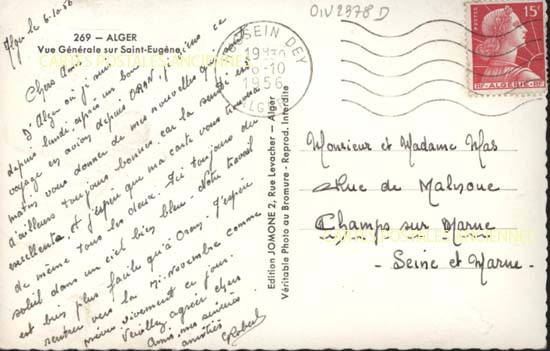 Alger le 6.10.56
OIV 2978 D
269 - ALGER
Vue Générale sur Saint-Eugène
Chers Amis,
D'Alger où je suis
depuis lundi, après un bon
voyage en avion depuis ORAN, je viens ce
matin vous donner de mes nouvelles qui sont
d'ailleurs toujours bonnes car la santé est
excellente et j'espère que ma carte vous trouvera
de même tous les deux. Ici toujours du
soleil dans un ciel bien bleu. Notre travail
est bien plus facile qu'à Oran. J'espère
rentrer vers la mi-novembre comme
prévu vivement ce jour.
Veuillez agréer chers
Amis, mes sincères
amitiés
Robert
Edition JOMONE 2, Rue Levacher — Alger
Véritable Photo au Bromure - Reprod. Interdite
HUSSEIN DEY
19H30
6-10
1956
ALGER
15F
RF ALGERIE RF
Monsieur et Madame Mas
Rue de Malnoue
Champs sur Marne
- Seine et Marne -
CARTES POSTALES ANCIENNES
CARTES POSTALES ANCIENNES
CARTES POSTALES ANCIENNES